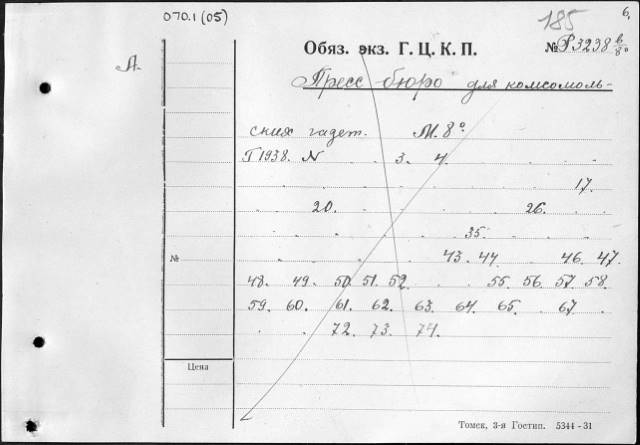 070.1 (05)
185
6.
Обяз. экз. Г. Ц. К. П.
№ Р3238 в/8°
А.
Пресс бюро для комсомоль-
ских газет. М. 8°
Г 1938. N . . 3. 4.
17.
20. 26.
35.
№ 43. 44. 46. 47.
48. 49. 50. 51. 52. 55. 56. 57. 58.
59. 60. 61. 62. 63. 64. 65. 67.
72. 73. 74.
Цена
Томск, 3-я Гостип. 5344-31